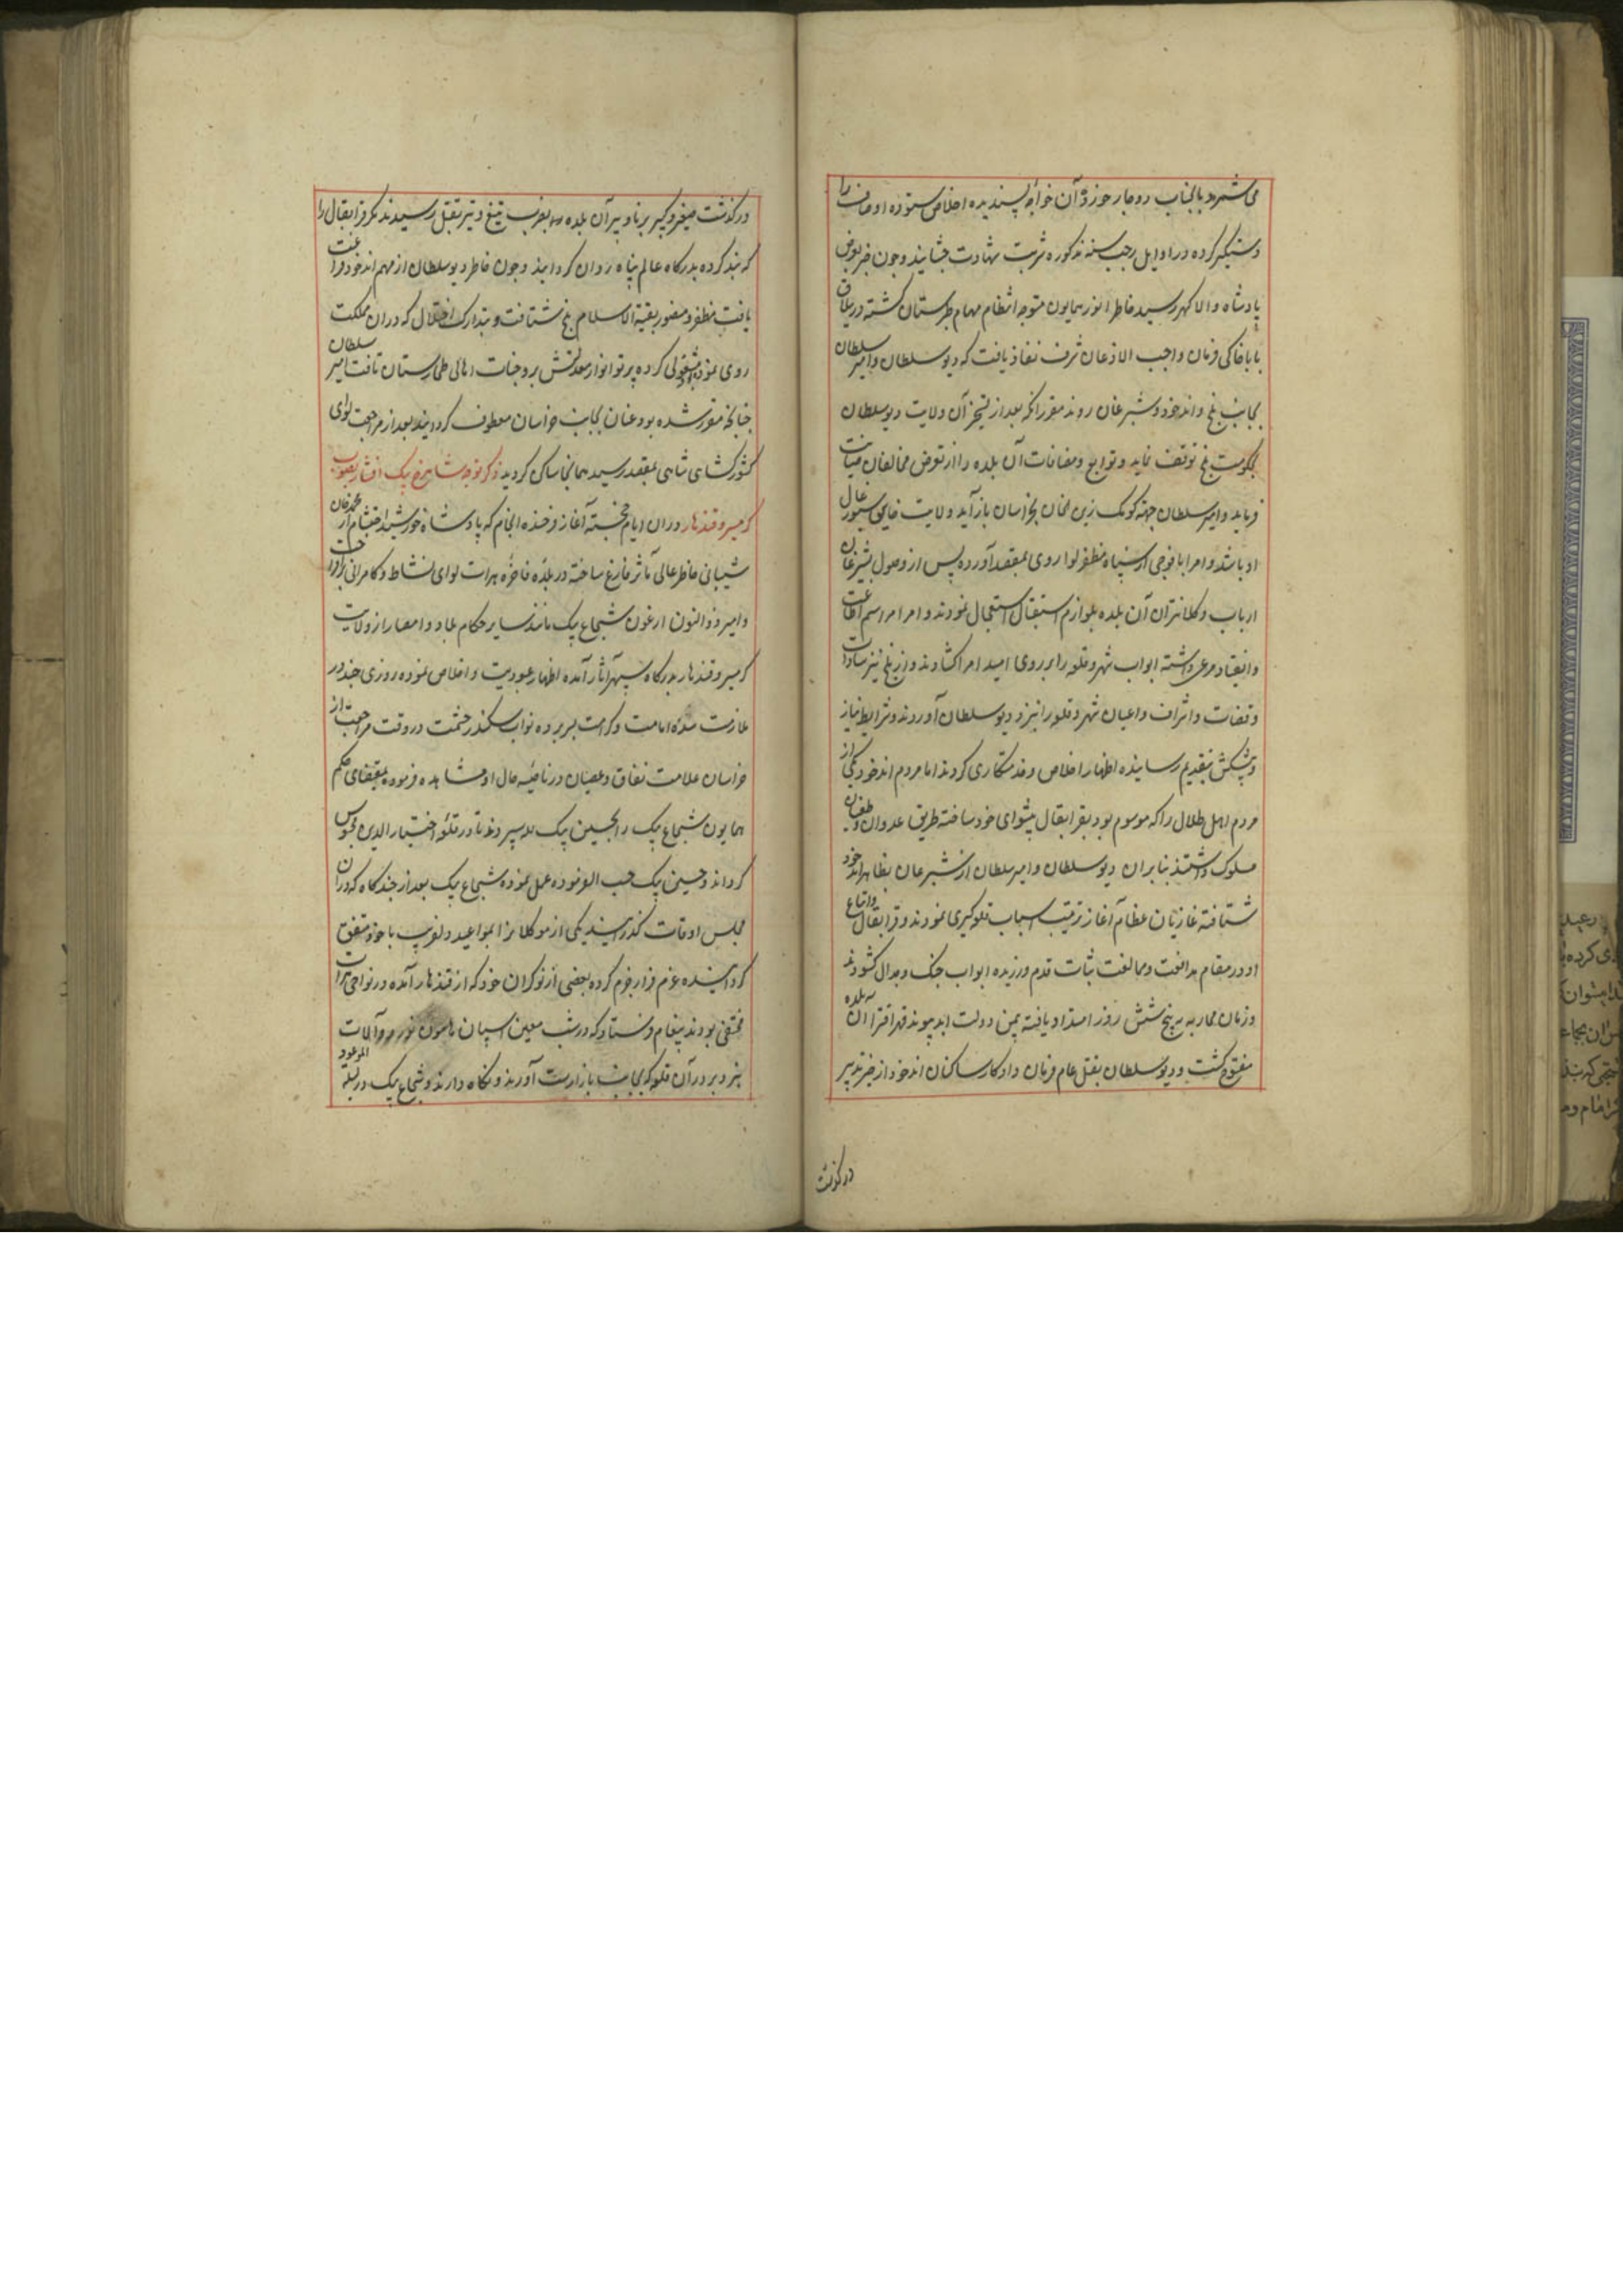 می‌شمرد بالجناب دوچار خورد و آن خواجه پسندیده اخلاص ستوده اوصاف را
دستگیر کرده در اوایل رجب سنه مذکوره شربت شهادت چشانید و چون خبر بعرض
پادشاه والا گهر رسید خاطر انور همایون متوجه انتظام مهام طبرستان گشته در ییلاق
باباخاکی فرمان واجب الاذعان شرف نفاذ یافت که دیو سلطان و امیر سلطان
بجانب بلخ و اندخود و شبرغان روند مقرر آنکه بعد از تسخیر آن ولایت دیو سلطان
بحکومت بلخ توقف نماید و توابع و مضافات آن بلده را از تعرض مخالفان صیانت
فرماید و امیر سلطان جهة کومک زین خان بخراسان بازآید و ولایت قاین سیورغال
او باشد و امرا با فوجی از سپاه مظفر لوا روی بمقصد آورده پس از وصول بشبرغان
ارباب و کلانتران آن بلده بلوازم استقبال استعجال نمودند و امرا مراسم اطاعت
و انقیاد مرعی داشته ابواب شهر و قلعه را بر روی امید امرا گشادند و از بلخ نیز سادات
و قضات و اشراف و اعیان شهر و قلعه را نیز نزد دیو سلطان آوردند و شرایط نیاز
و پیشکش بتقدیم رسانیده اظهار اخلاص و خدمتکاری کردند اما مردم اندخود یکی از
مردم اهل ظلال را که موسوم بود بقرابقال پیشوای خود ساخته طریق عدوان و طغیان
مسلوک داشتند بنابران دیو سلطان و امیر سلطان از شبرغان بظاهر اندخود
شتافته غازیان عظام آغاز ترتیب اسباب قلعه‌گیری نمودند و قرابقال و اتباع
او در مقام مدافعت و ممانعت ثبات قدم ورزیده ابواب جنک و جدال کشودند
و زمان محاربه به پنج شش روز امتداد یافته بیمن دولت ابد پیوند قهرا قسرا آن بلده
مفتوح گشت و دیو سلطان بقتل عام فرمان داد کار ساکنان اندخود از خیر تدبیر
درگذشت
درگذشت صغیر و کبیر برنا و پیر آن بلده بضرب تیغ و تیر بقتل رسیدند مگر قرابقال را
که بند کرده بدرگاه عالم پناه روان گردانید و چون خاطر دیو سلطان از مهم اندخود فراغت
یافت مظفر و منصور بقبة الاسلام بلخ شتافت و بتدارک اختلال که در ان مملکت
روی نموده مشغولی کرده پرتو انوار معدلتش بر وجنات اهالی طخارستان تافت امیر سلطان
چنانچه مقرر شده بود عنان بجانب خراسان معطوف گردانید بعد از مراجعت لوای
کشورکشای شاهی بمقصد رسید همانجا ساکن گردید ذکر توجه شاهرخ بیک افشار بصوب
گرمسیر و قندهار در ان ایام خجسته آغاز فرخنده انجام که پادشاه خورشید احتشام از محمد خان
شیبانی خاطر عالی مآثر فارغ ساخته در بلده فاخره هرات لوای نشاط و کامرانی برافراخت
و امیر ذوالنون ارغون شجاع بیک مانند سایر حکام بلاد و امصار از ولایت
گرمسیر و قندهار بدرگاه سپهر آثار آمده اظهار عبودیت و اخلاص نموده روزی چند در
ملازمت سده امامت و کرامت بسر برده نواب سکندر حشمت در وقت مراجعت از
خراسان علامت نفاق و عصیان در ناصیه حال او مشاهده فرموده بمقتضای حکم
همایون شجاع بیک را بحسین بیک لله سپردند تا در قلعه اختیارالدین محبوس
گرداند و حسین بیک حسب الفرموده عمل نموده شجاع بیک بعد از چند گاه که در ان
مجلس اوقات گذرانید یکی از موکلانرا بمواعید دلفریب با خود متفق
گردانیده عزم فرار جزم کرده ببعضی از نوکران خود که از قندهار آمده در نواحی هرات
مختفی بودند پیغام فرستاد که در شب معین اسپان هامون نورد و آلات
بزیر در آن قلعه که بجانب بازارست آورند و نگاه دارند و شجاع بیک در لیله الموعود